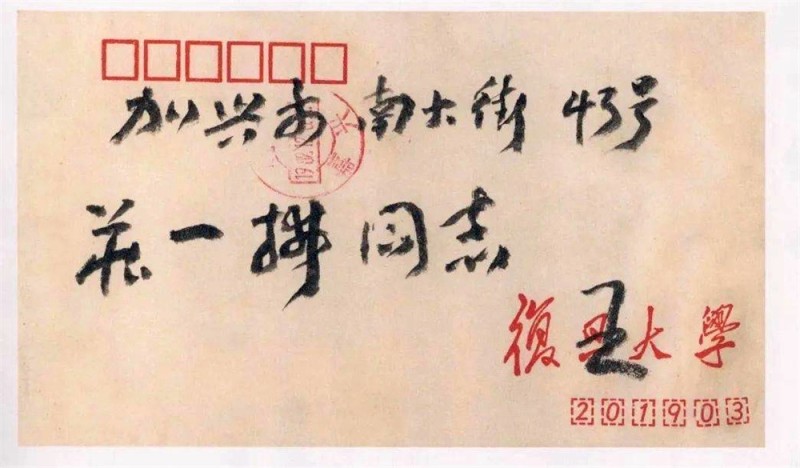 加兴市南大街43号
莊一拂同志
復旦大學
王
201903